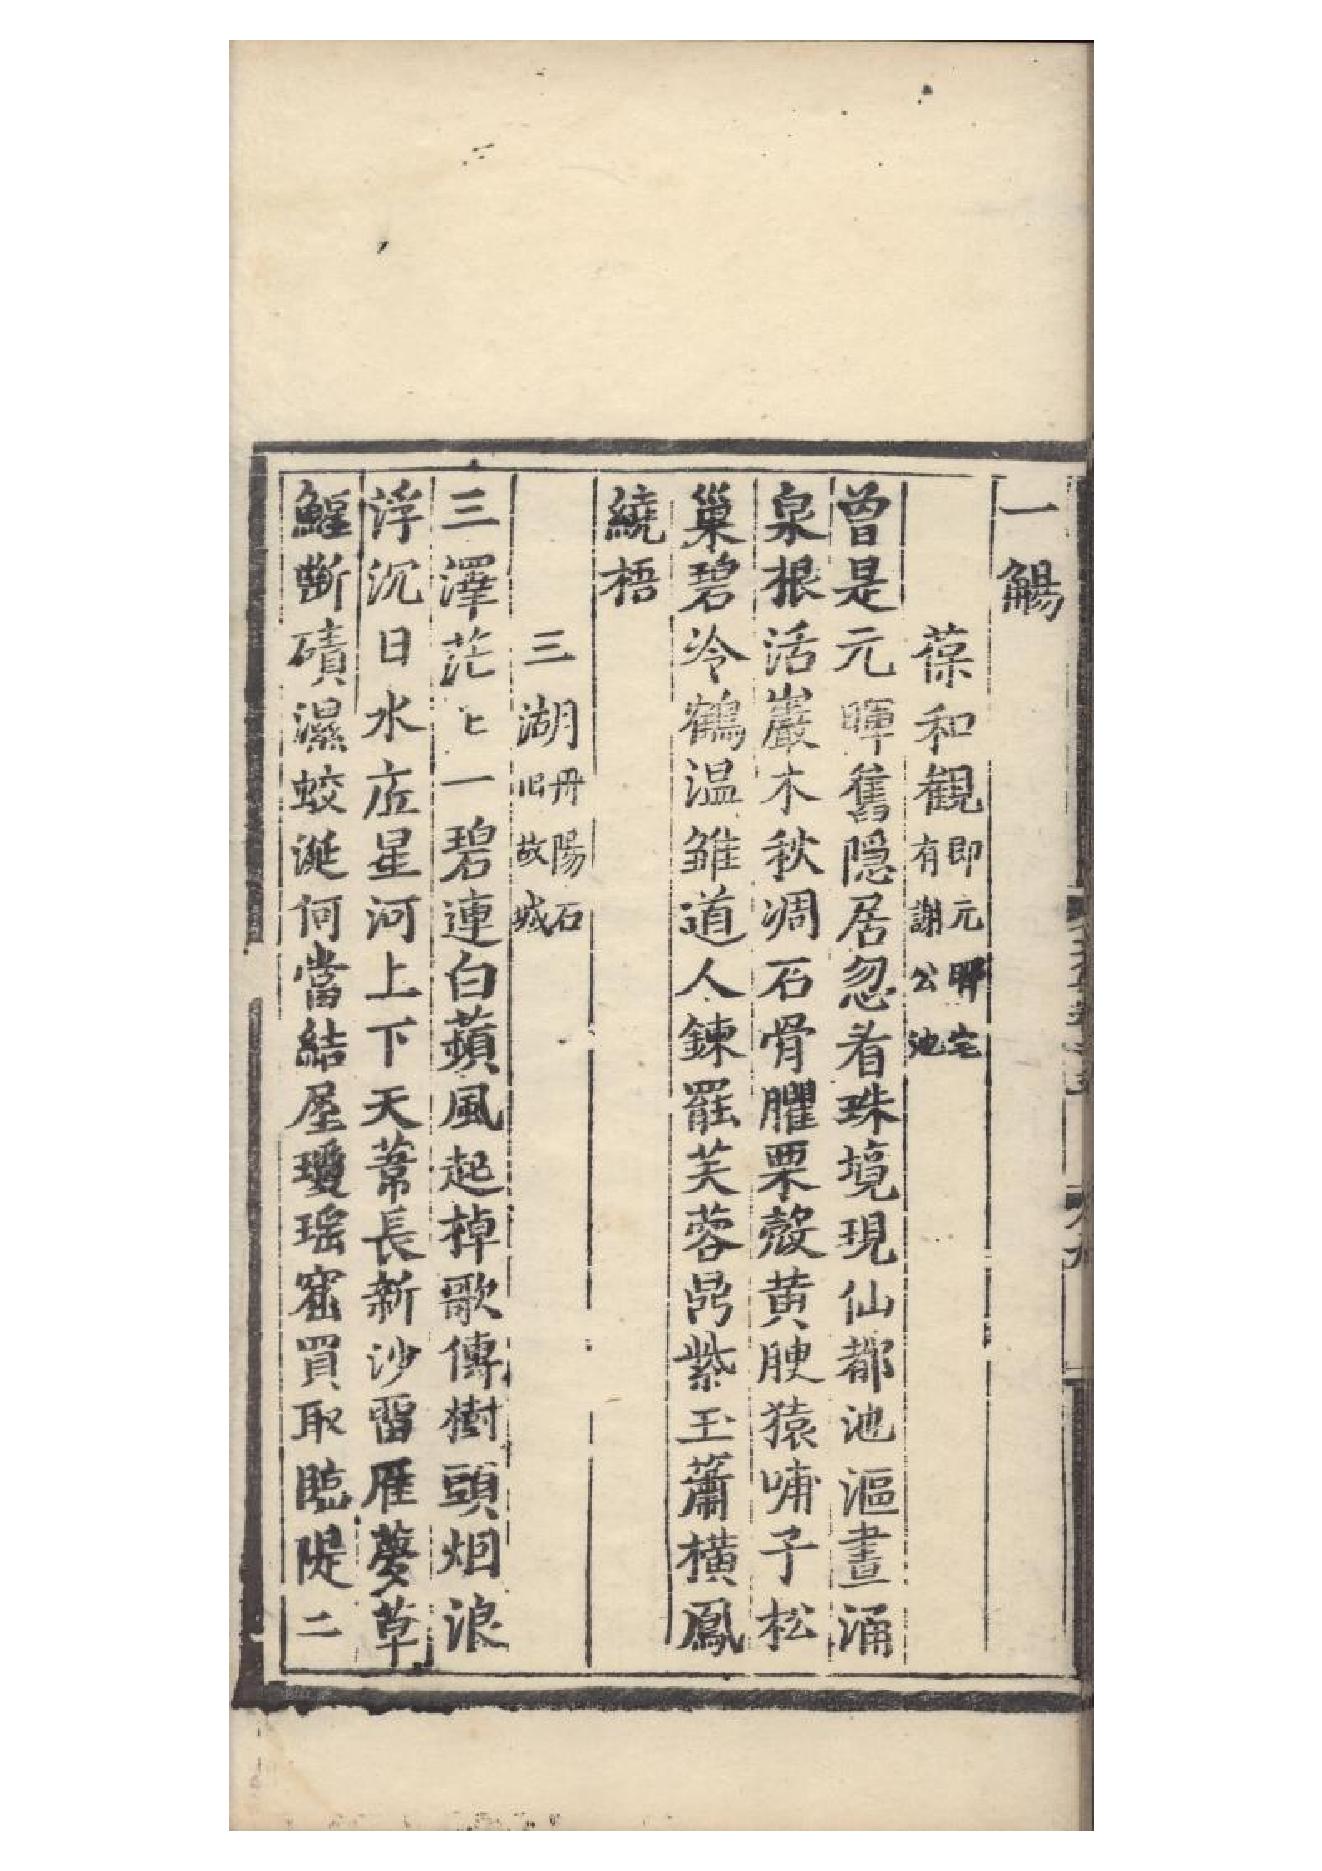 一觴
葆和觀即元暉宅有謝公池
曾是元暉舊隱居忽看珠境現仙都池漚晝涌
泉根活巖木秋凋石骨臞栗殼黃腴猿哺子松
巢碧冷鶴温雏道人鍊罷芙蓉鼎紫玉蕭橫鳳
繞梧
三湖丹陽石旧故城
三澤茫〻一碧連白蘋風起棹歌傳樹頭烟浪
浮沉日水底星河上下天葦長新沙留雁夢草
鯹斷磧濕蛟涎何當結屋瓊瑶窟買取臨隄二